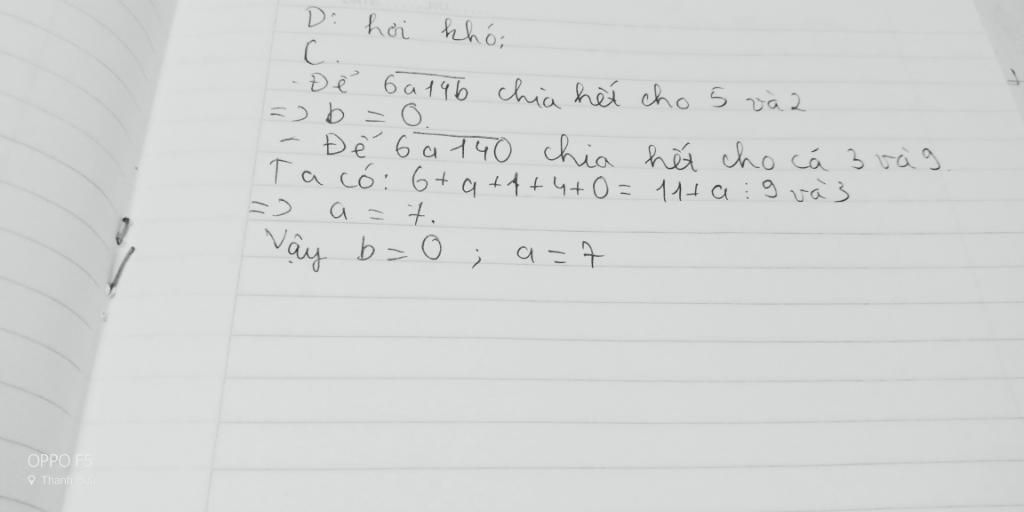 D: hơi khó;
C.
- Để 6a14b chia hết cho 5 và 2
=> b = 0.
- Để 6a140 chia hết cho cả 3 và 9.
Ta có: 6 + a + 1 + 4 + 0 = 11 + a ⋮ 9 và 3
=> a = 7.
Vậy b = 0 ; a = 7
OPPO F5